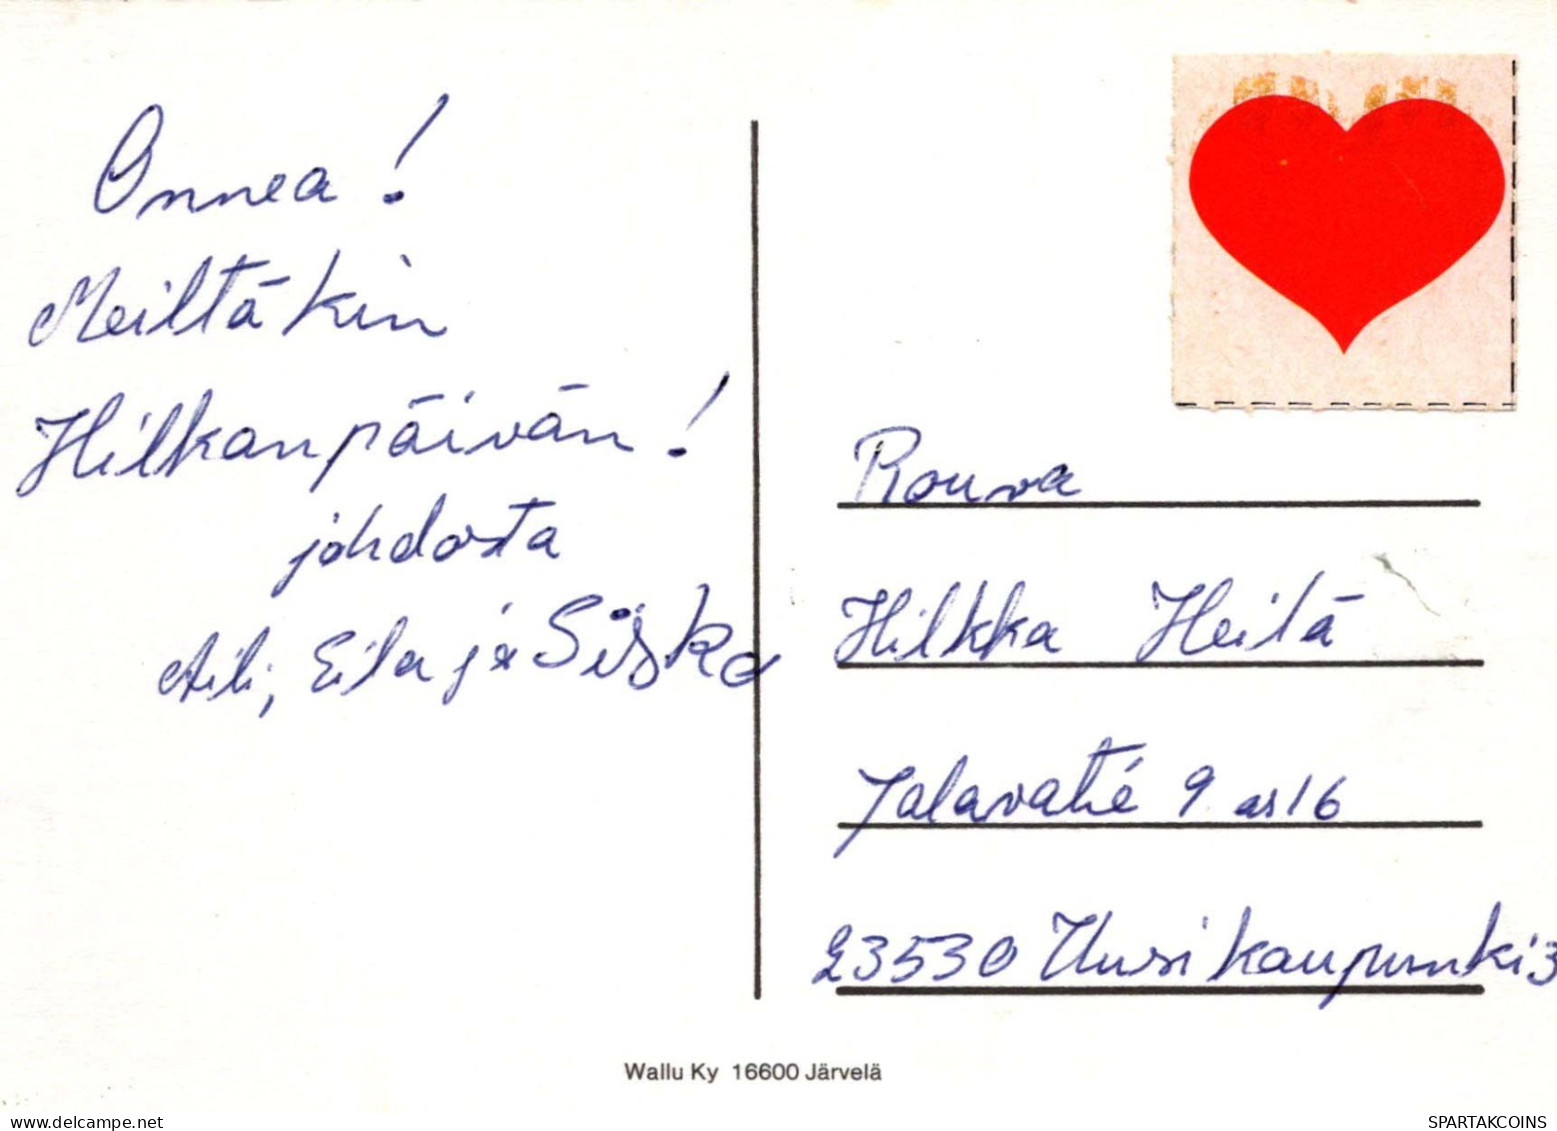 Onnea!
Meiltäkin
Hilkanpäivän!
johdosta
Aili, Eila ja Sisko
Rouva
Hilkka Heilä
Jalavatie 9 as 16
23530 Uusikaupunki 3
Wallu Ky 16600 Järvelä
SPARTAKCOINS